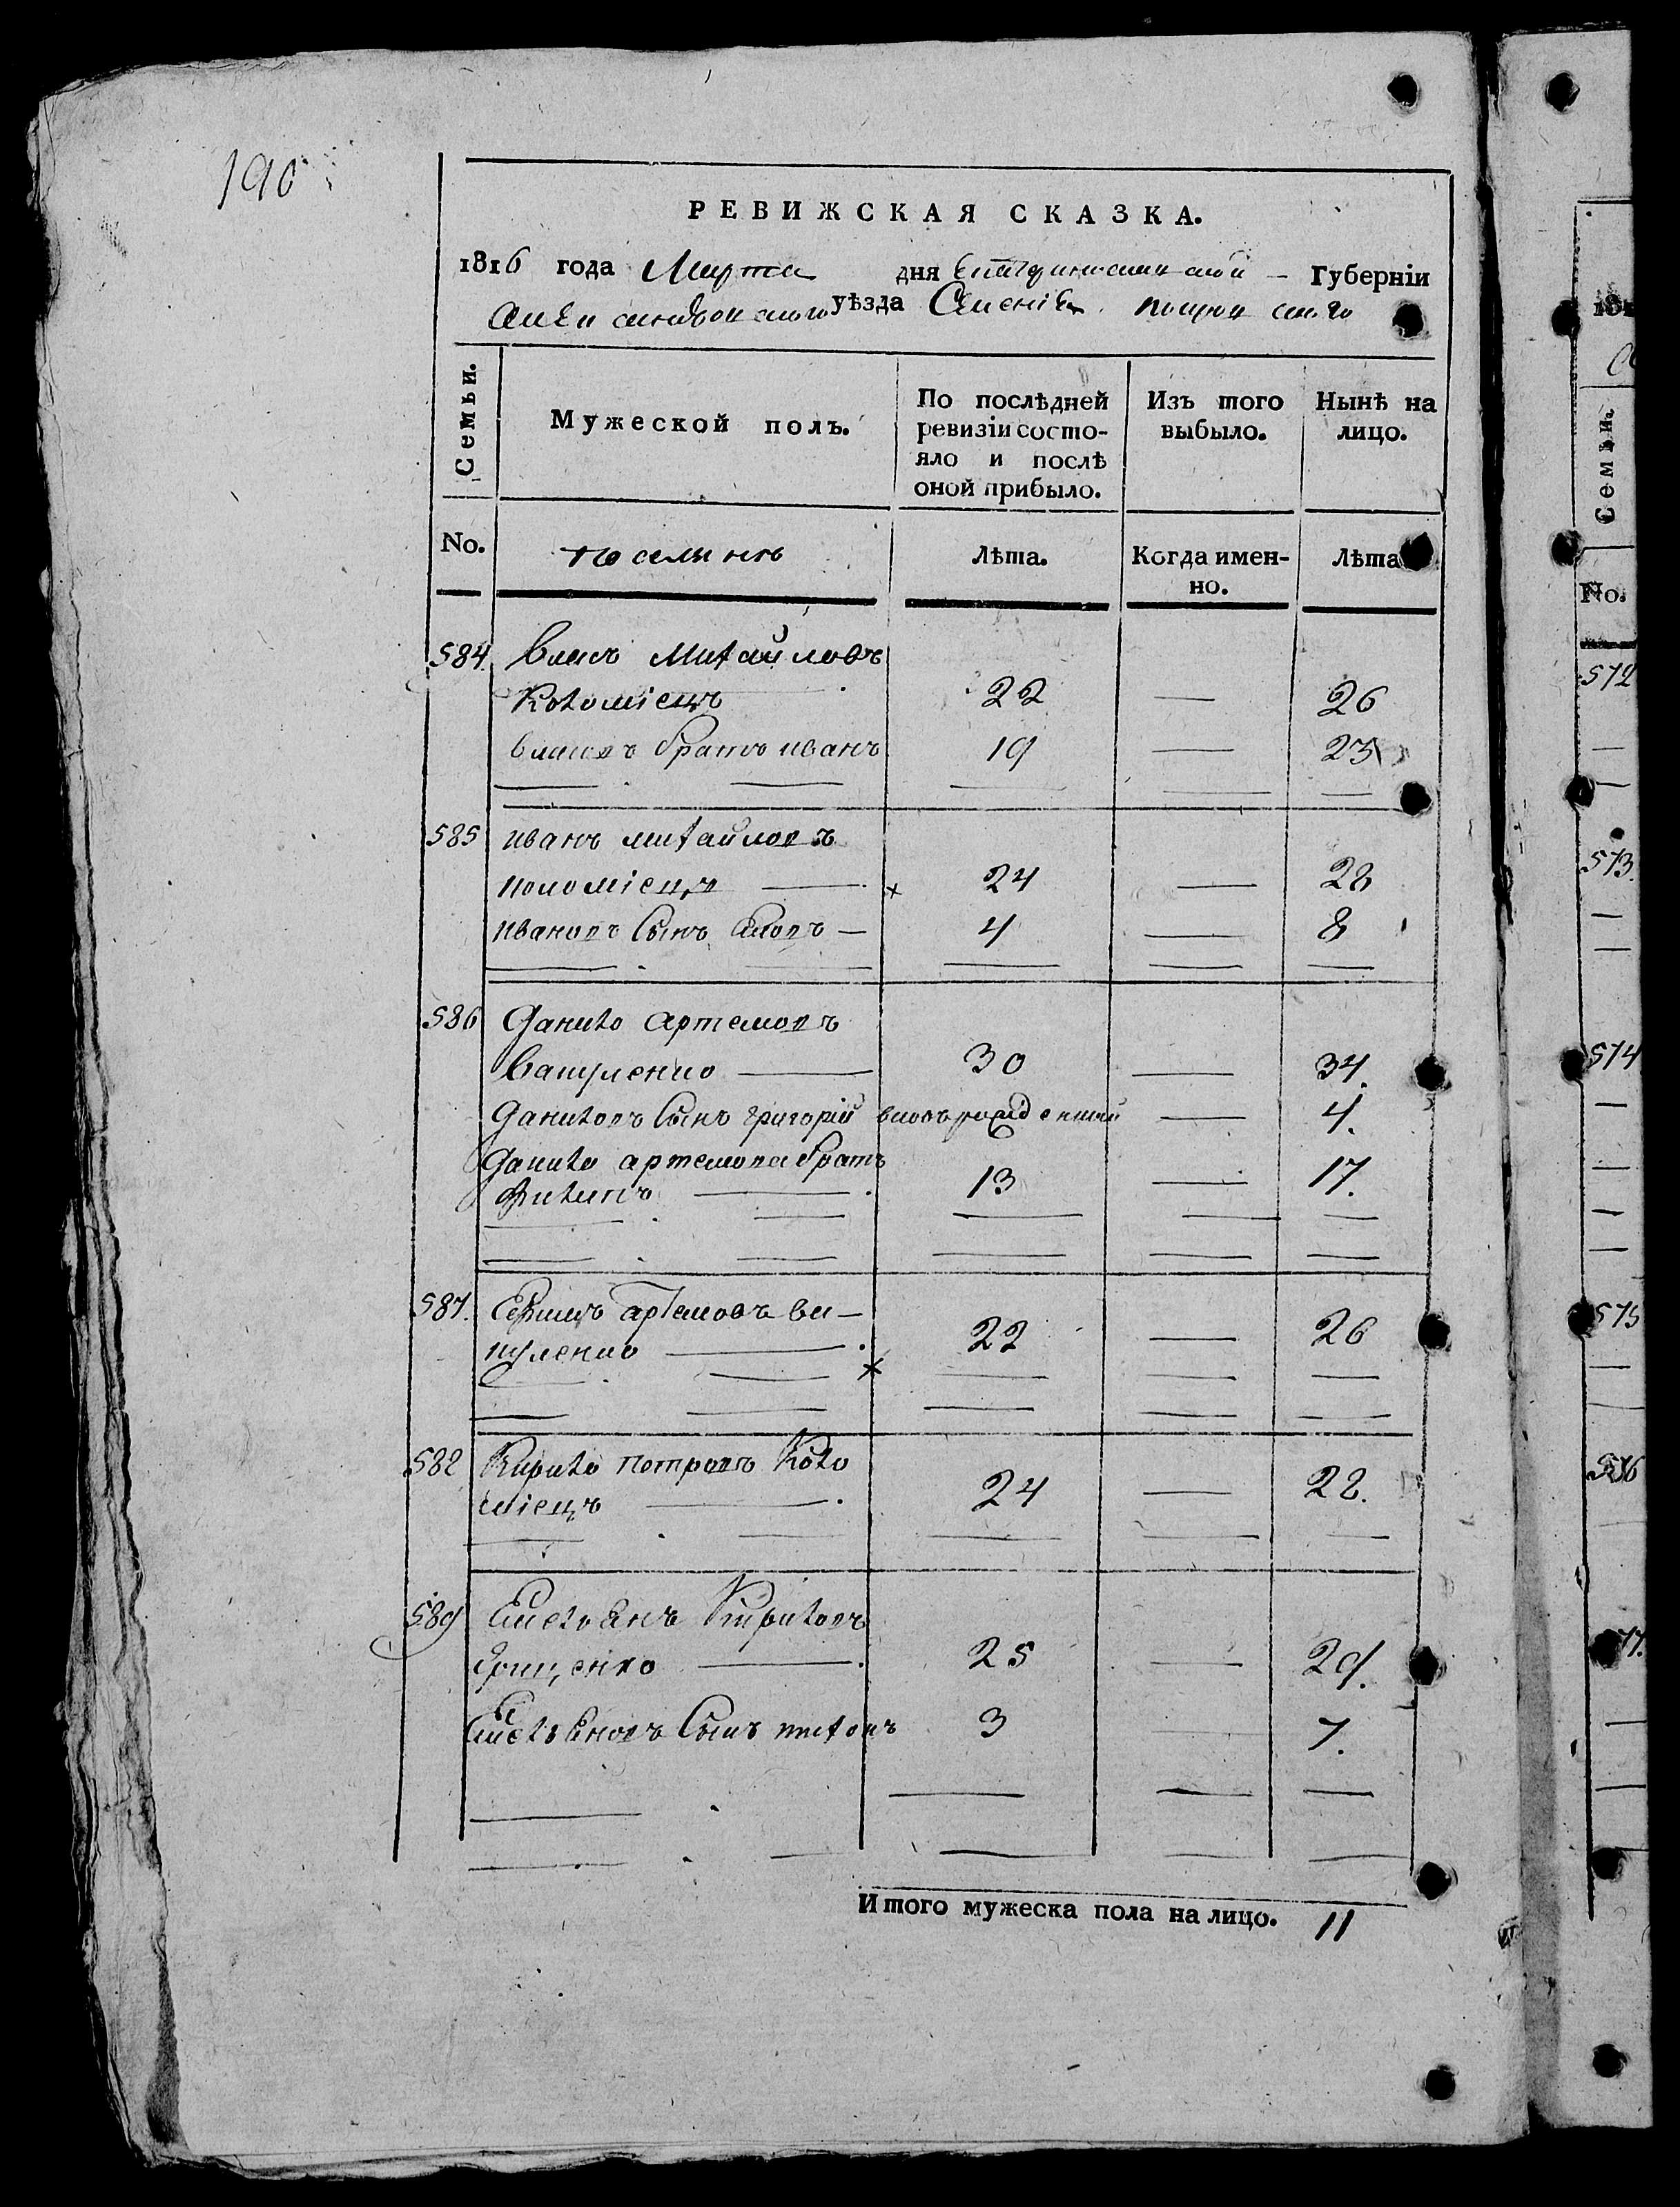 190
РЕВИЖСКАЯ СКАЗКА.
1816 года Марта дня Екатеринославской Губерніи
Александровского уѣзда Селеніе Покровского
Семьи.
Мужеской полъ.
По послѣдней ревизіи состо-
яло и послѣ
оной прибыло.
Изъ того
выбыло.
Нынѣ на
лицо.
No.
Лѣта.
Когда имен-
но.
Лѣта
584. Власъ Михайловъ
Коломіецъ 22 — 26
Власовъ братъ иванъ 19 — 23
585 иванъ михайловъ
коломіецъ — 24 — 28
ивановъ Сынъ — 4 — 8
586 Данило артемовъ
Вакуленко — 30 — 34.
Даниловъ Сынъ григорій вновьрожденный — 4.
Данило артемова братъ
Филипъ — 13 — 17.
587. артемовъ ва-
куленко — 22 — 26
588 Кирило петровъ Коло
міецъ — 24 — 28.
589 Емельянъ Кириловъ
— 25 — 29.
Емельяновъ Сынъ 3 7.
Итого мужеска пола на лицо. 11
181
Семьи.
No.
572
573.
574
575
576
77.